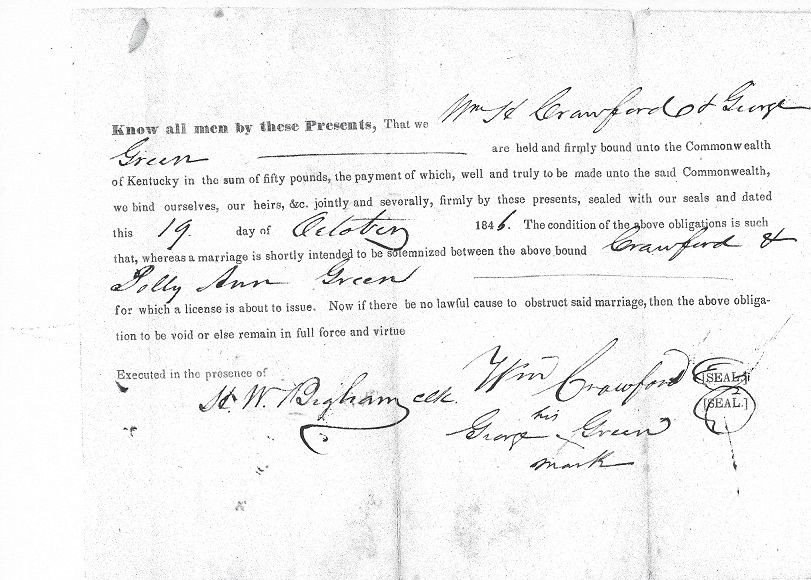 Know all men by these Presents, That we Wm H Crawford & George
Green are held and firmly bound unto the Commonwealth
of Kentucky in the sum of fifty pounds, the payment of which, well and truly to be made unto the said Commonwealth,
we bind ourselves, our heirs, &c. jointly and severally, firmly by these presents, sealed with our seals and dated
this 19 day of October 1846. The condition of the above obligations is such
that, whereas a marriage is shortly intended to be solemnized between the above bound Crawford &
Polly Ann Green
for which a license is about to issue. Now if there be no lawful cause to obstruct said marriage, then the above obliga-
tion to be void or else remain in full force and virtue
Executed in the presence of
H. W. Bigham clk. Wm Crawford [SEAL.]
his [SEAL.]
George Green
mark